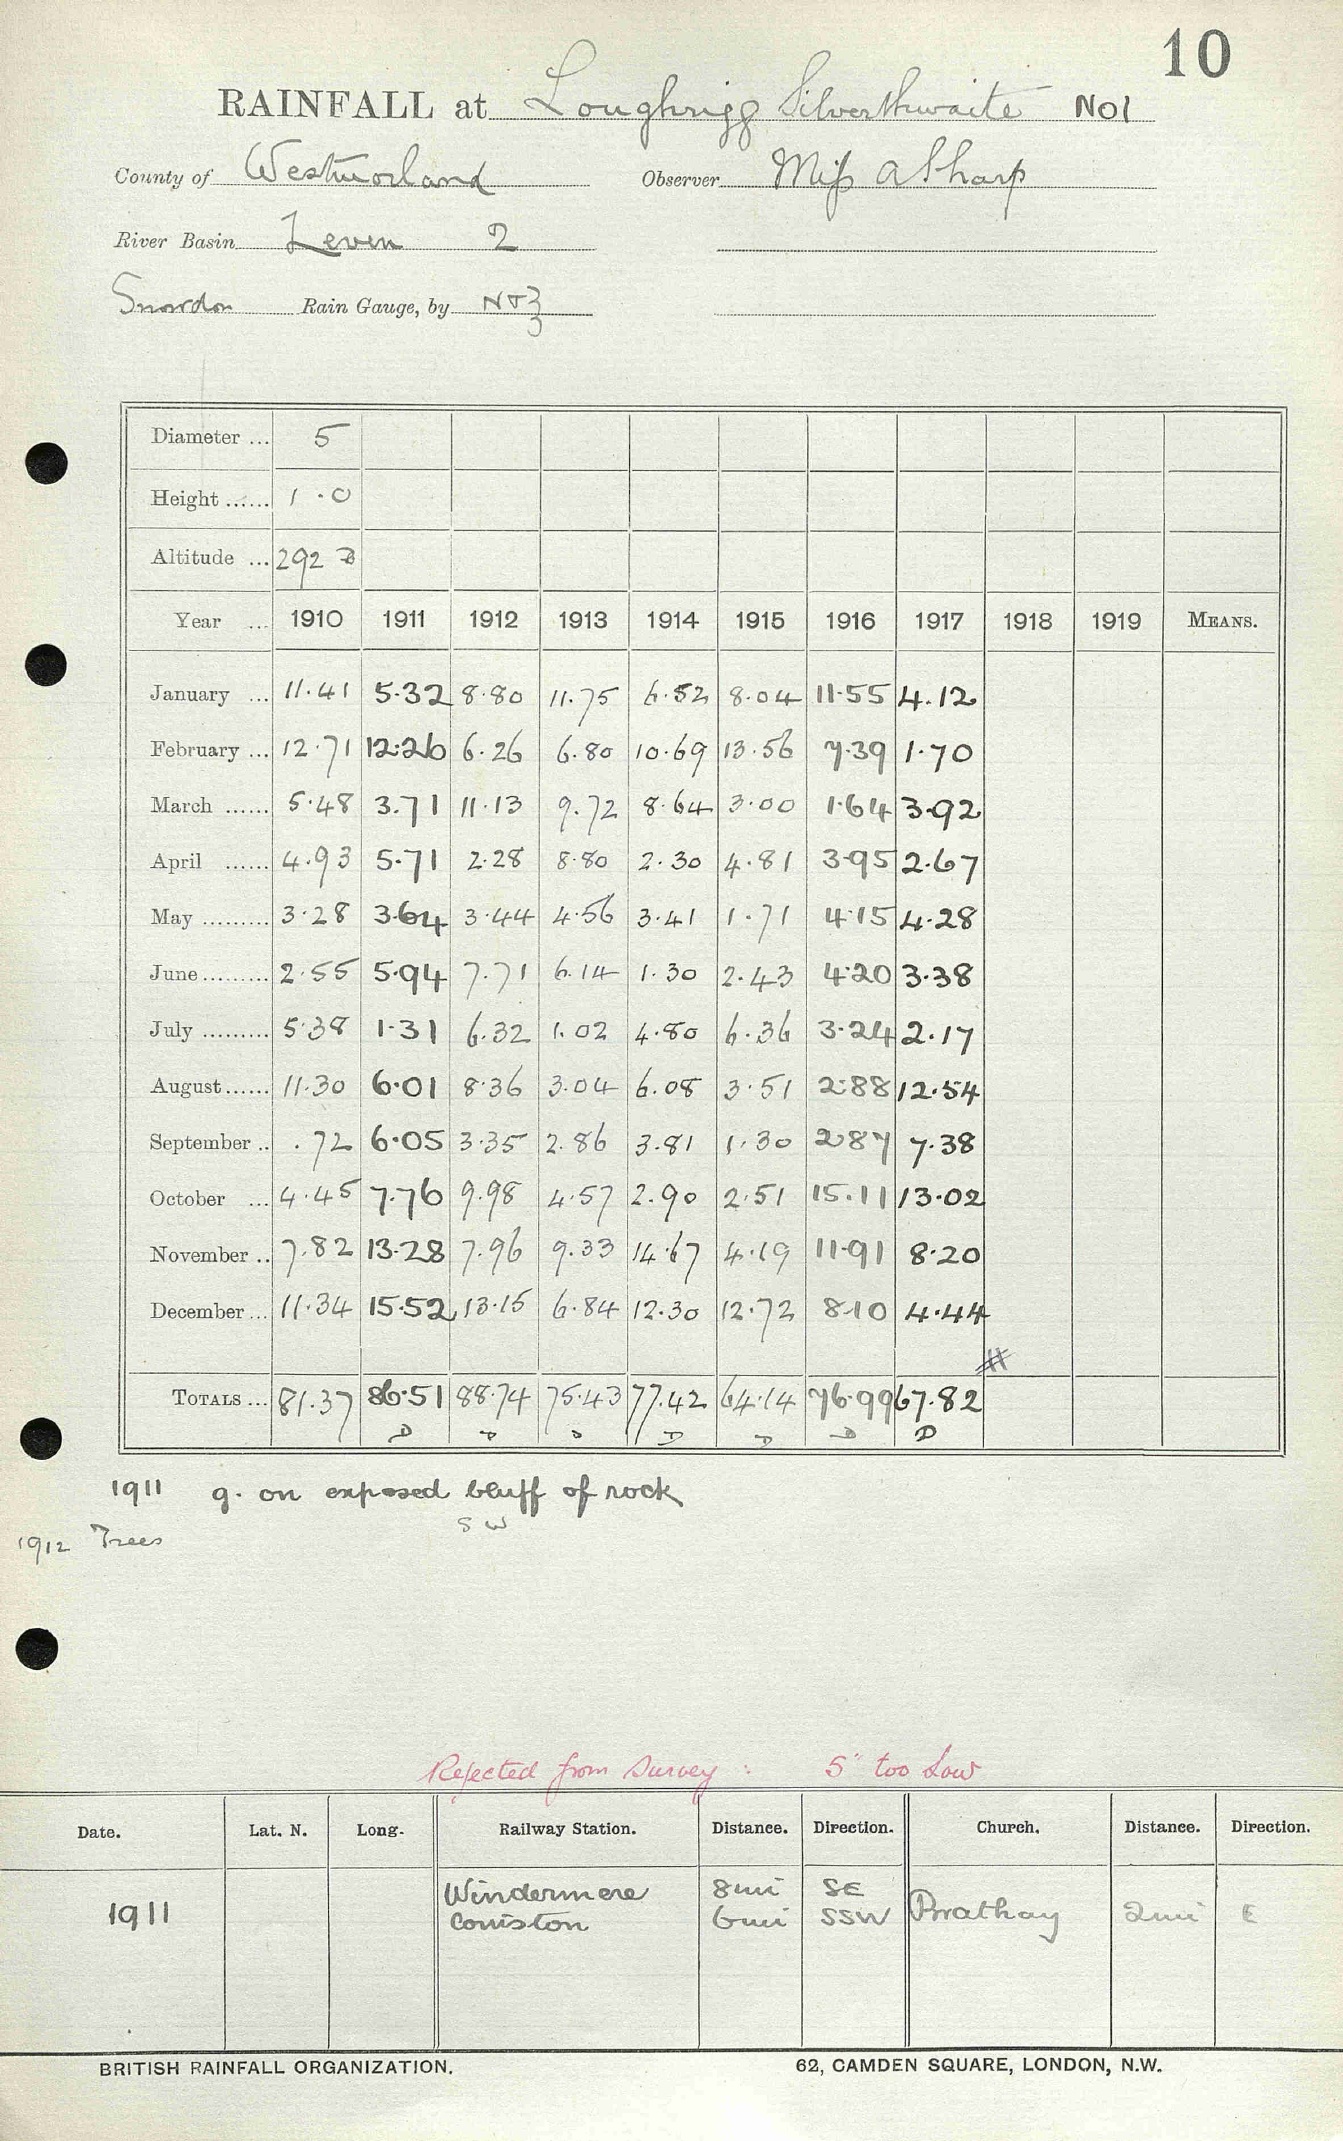 10
RAINFALL at Loughrigg Silverthwaite No1
County of Westmorland Observer Miss A Sharp
River Basin Leven 2
Snowdon Rain Gauge, by N & Z
Diameter ... 5
Height ...... 1.0
Altitude ... 292
Year ... 1910 1911 1912 1913 1914 1915 1916 1917 1918 1919 MEANS.
January ... 11.41 5.32 8.80 11.75 6.52 8.04 11.55 4.12
February ... 12.71 12.26 6.26 6.80 10.69 13.56 7.39 1.70
March ...... 5.48 3.71 11.13 9.72 8.64 3.00 1.64 3.92
April ...... 4.93 5.71 2.28 8.80 2.30 4.81 3.95 2.67
May ......... 3.28 3.64 3.44 4.56 3.41 1.71 4.15 4.28
June ......... 2.55 5.94 7.71 6.14 1.30 2.43 4.20 3.38
July ......... 5.38 1.31 6.32 1.02 4.80 6.36 3.24 2.17
August ...... 11.30 6.01 8.36 3.04 6.08 3.51 2.88 12.54
September .. .72 6.05 3.35 2.86 3.81 1.30 2.87 7.38
October ... 4.45 7.76 9.98 4.57 2.90 2.51 15.11 13.02
November .. 7.82 13.28 7.96 9.33 14.67 4.19 11.91 8.20
December ... 11.34 15.52 13.15 6.84 12.30 12.72 8.10 4.44
TOTALS ... 81.37 86.51 88.74 75.43 77.42 64.14 76.99 67.82
D D D D D D D
1911 g. on exposed bluff of rock
S W
1912 Trees
Rejected from Survey : 5" too Low
Date. Lat. N. Long. Railway Station. Distance. Direction. Church. Distance. Direction.
1911 Windermere 8mi SE Brathay 2mi E
Coniston 6mi SSW
BRITISH RAINFALL ORGANIZATION. 62, CAMDEN SQUARE, LONDON, N.W.